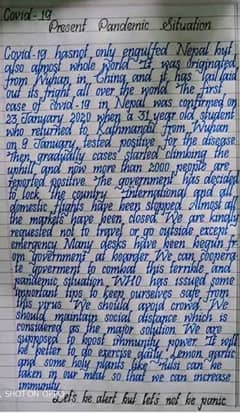 Covid-19
Present Pandemic Situation
Covid-19 hasnot only engulfed Nepal but
also almost whole world. It was originated
from Wuhan, in China and it has laillaid
out its fright all over the world. The first
case of covid-19 in Nepal was confirmed on
23 January 2020 when a 31 year old student
who returned to Kathmandu from Wuhan
on 9 January, tested positive for the disease
Then gradually cases started climbing the
uphill and now more than 2000 people are
reported positive. The goverment has decided
to lock the country. International and all
domestic flights have been stopped. Almost all
the markets have been closed. We are kindly
requested not to travel or go outside except
emergency. Many desks have been begun fr
om government at boarder. We can coopera
te goverment to combat this terrible and
pandemic situation. WHO has issued some
important tips to keep ourselves safe from
this virus. We should avoid crowd. We
should maintain social distance which is
considered as the major solution. We are
supposed to boost immunity power. It will
be better to do exercise daily. Lemon, garlic
and some holy plants like Tulsi can be
taken in our meal so that we can increase
immunity.
Let's be alert but let's not be panic.
SHOT ON OPPO